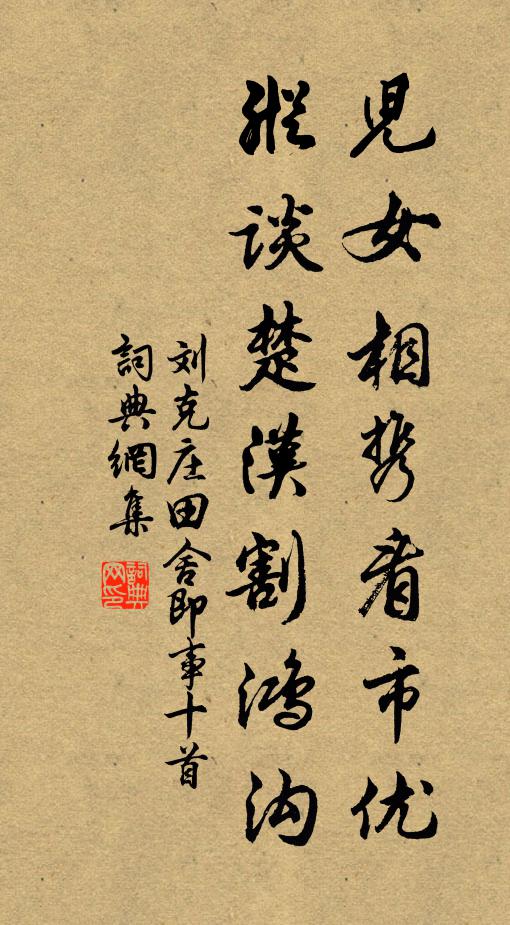 兒女相携看市优
縱談楚漢割鴻沟
刘克庄田舍即事十首
詞典網集
詞典
网印